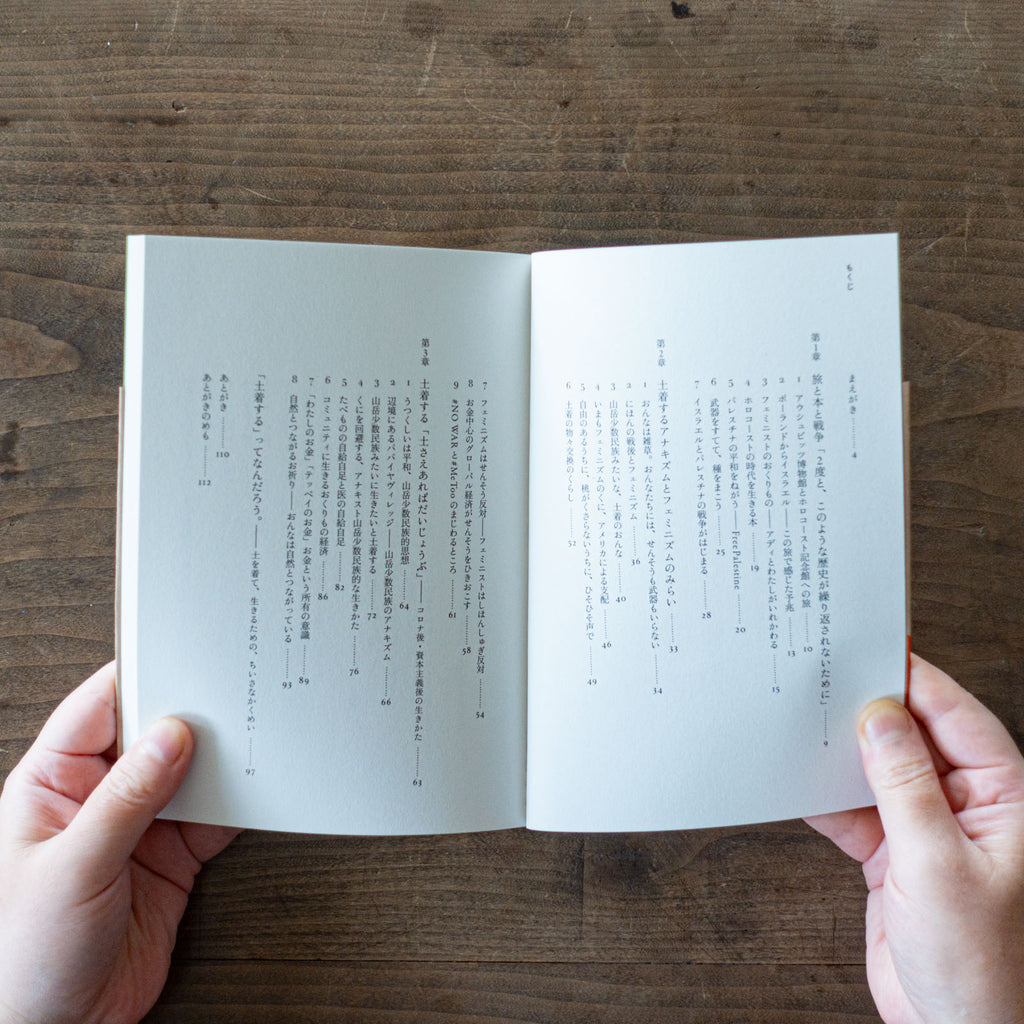 もくじ
まえがき………4
第1章 旅と本と戦争「2度と、このような歴史が繰り返されないために」………9
1 アウシュビッツ博物館とホロコースト記念館への旅………10
2 ポーランドからイスラエル——この旅で感じた予兆………13
3 フェミニストのおくりもの——アディとわたしがいれかわる………15
4 ホロコーストの時代を生きる本………19
5 パレスチナの平和をねがう——Free Palestine………20
6 武器をすてて、種をまこう………25
7 イスラエルとパレスチナの戦争がはじまる………28
第2章 土着するアナキズムとフェミニズムのみらい………33
1 おんなは雑草。おんなたちには、せんそうも武器もいらない………34
2 にほんの戦後とフェミニズム………36
3 山岳少数民族みたいな、土着のおんな………40
4 いまもフェミニズムのくに、アメリカによる支配………46
5 自由のあるうちに、桃がくさらないうちに、ひそひそ声で………49
6 土着の物々交換のくらし………52
7 フェミニズムはせんそう反対——フェミニストはしほんしゅぎ反対………54
8 お金中心のグローバル経済がせんそうをひきおこす………58
9 #NO WARと#MeTooのまじわるところ………61
第3章 土着する「土さえあればだいじょうぶ」——コロナ後・資本主義後の生きかた………63
1 うつくしいは平和、山岳少数民族的思想………64
2 辺境にあるパパイヤヴィレッジ——山岳少数民族のアナキズム………66
3 山岳少数民族みたいに生きたいと土着する………72
4 くにを回避する、アナキスト山岳少数民族的な生きかた………76
5 たべものの自給自足と医の自給自足………82
6 コミュニティに生きるおくりもの経済………86
7 「わたしのお金」「テッペイのお金」お金という所有の意識………89
8 自然とつながるお祈り——おんなは自然とつながっている………93
「土着する」ってなんだろう。——土を着て、生きるための、ちいさなかくめい………97
あとがき………110
あとがきのめも………112